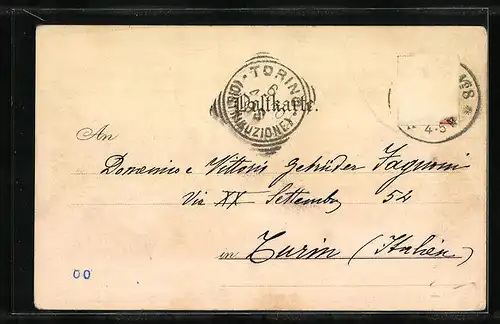 TORINO
(DISTRIBUZIONE)
No 8
4-5
Postkarte.
An
Domenico e Vittorio Gebrüder Fagnoni
Via XX Settembre 54
in Turin (Italien)
00